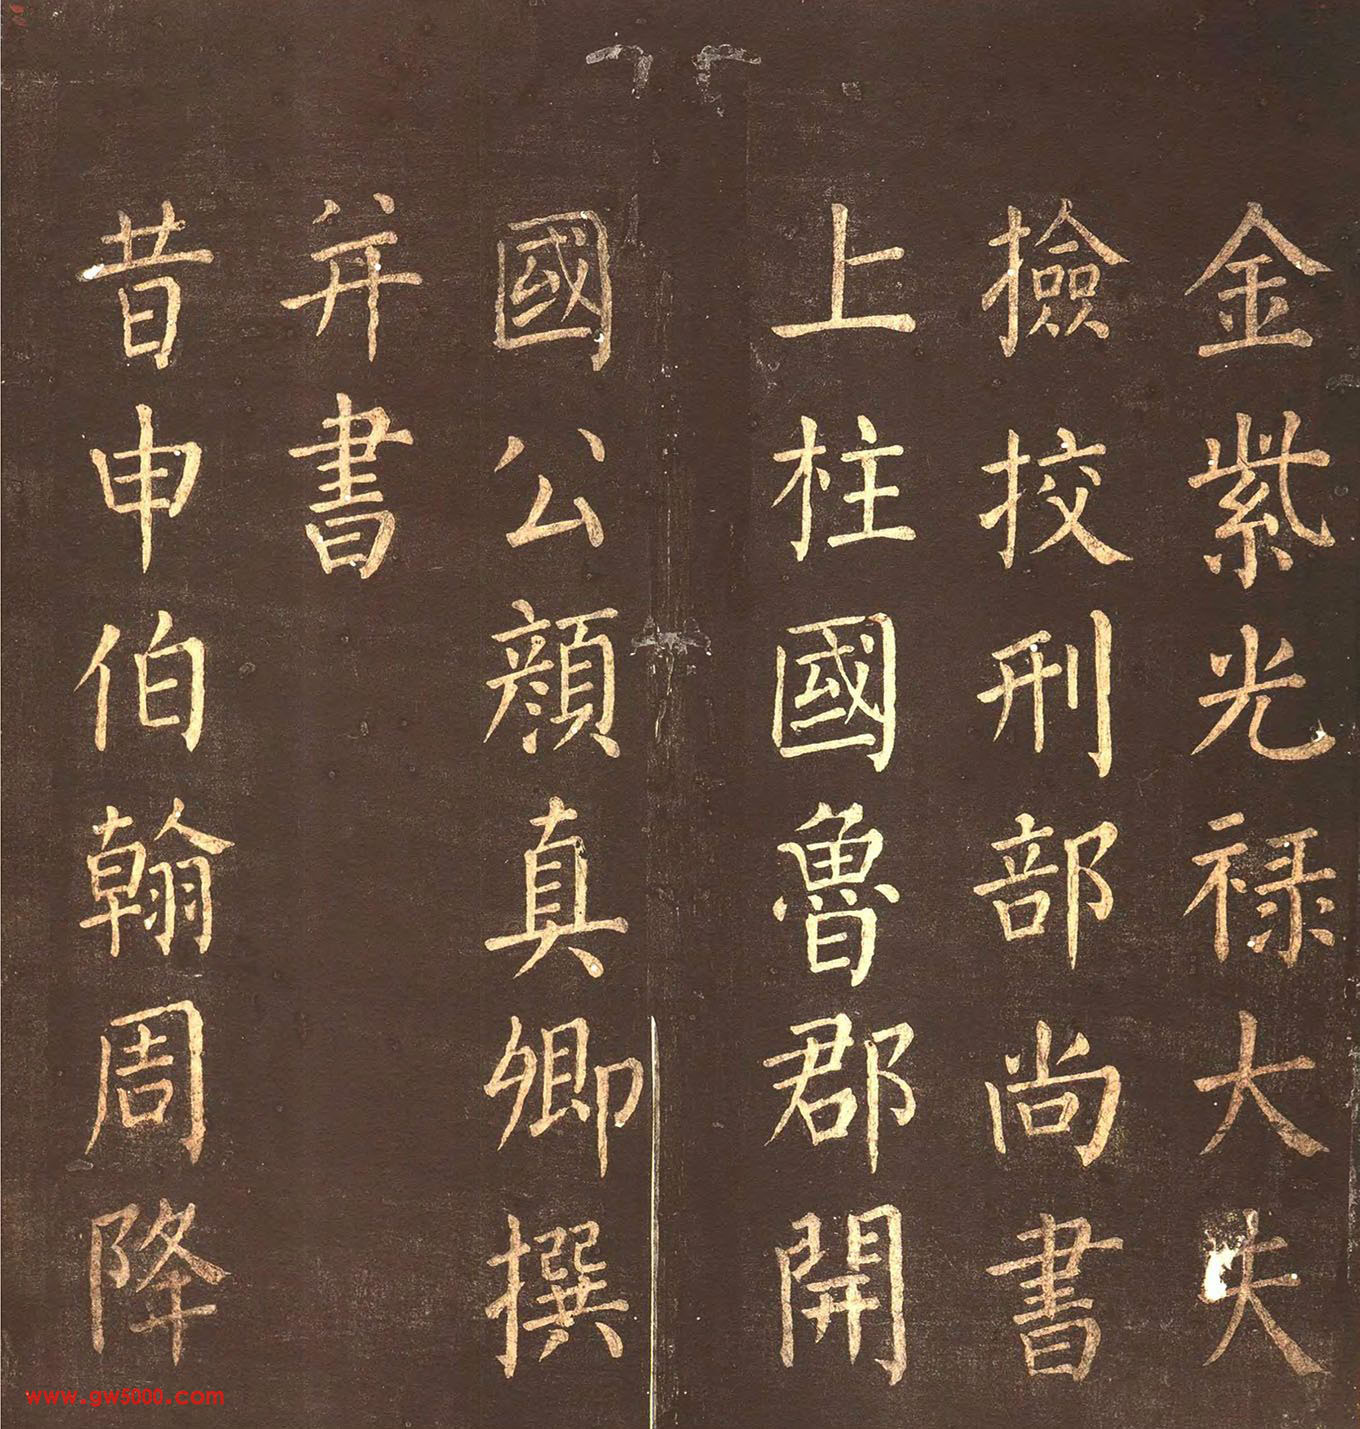 金紫光禄大夫
撿挍刑部尚書
上柱國魯郡開
國公顔真卿撰
并書
昔申伯翰周降
www.gw5000.com